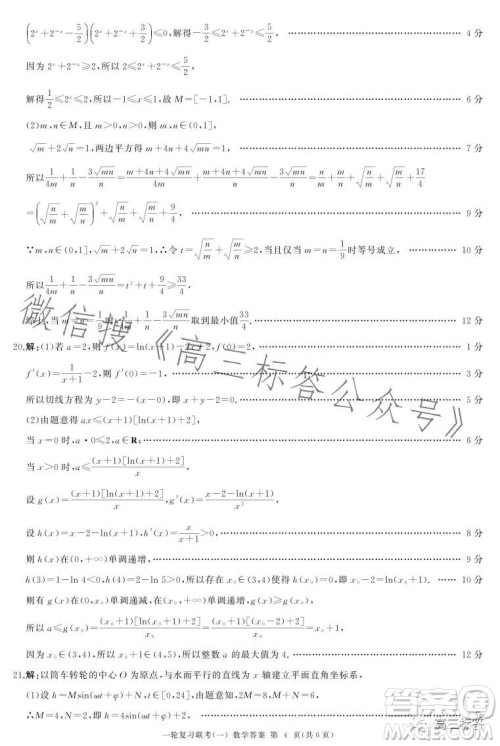 (2ˣ+2⁻ˣ-5/2)(2ˣ+2⁻ˣ+3/2)≤0,解得 ………… 4分
因为2ˣ+2⁻ˣ≥2,所以2≤2ˣ+2⁻ˣ≤5/2,
解得1/2≤2ˣ≤2,所以-1≤x≤1,故M=[-1,1]. ………… 6分
(2)m,n∈M,且m>0,n>0,则m,n∈(0,1].
√m+2√n=1,两边平方得m+4n+4√mn=1, ………… 7分
所以1/4m+1/n-3√mn/n=(m+4n+4√mn)/4m+(m+4n+4√mn)/n-3√mn/n=n/m+m/n+√(n/m)+√(m/n)+17/4
=(√(n/m)+√(m/n))²+√(n/m)+√(m/n)+9/4. ………… 9分
∵m,n∈(0,1],√m+2√n=1,∴令t=√(n/m)+√(m/n)≥2,当且仅当m=n=1/9时等号成立, ………… 10分
所以1/4m+1/n-3√mn/n=t²+t+9/4≥33/4.
当m=n=1/9时,1/4m+1/n-3√mn/n取到最小值33/4. ………… 12分
20.解:(1)若a=2,则f(x)=ln(x+1)-x+2,f(0)=2, ………… 1分
f′(x)=1/(x+1)-2,则f′(0)=-1, ………… 3分
所以切线方程为y-2=-(x-0),即x+y-2=0. ………… 5分
(2)由题意得ax≤(x+1)[ln(x+1)+2], ………… 6分
当x=0时,a·0≤2,则a∈R;
当x>0时,a≤(x+1)[ln(x+1)+2]/x.
设g(x)=(x+1)[ln(x+1)+2]/x,g′(x)=
设h(x)=x-2-ln(x+1),h′(x)=x/(x+1)>0, ………… 8分
则h(x)在(0,+∞)单调递增, ………… 9分
h(3)=1-ln 4<0,h(4)=2-ln 5>0,所以存在x₀∈(3,4)使得h(x₀)=0. …… 10分
所以g(x)在(0,x₀)单调递减,在(x₀,+∞)单调递增,
所以a≤g(x₀)=(x₀+1)[ln(x₀+1)+2]/x₀=(x₀+1)(x₀-2+2)/x₀=x₀+1.
因为x₀∈(3,4),所以x₀+1∈(4,5),所以整数a的最大值为4. ………… 12分
21.解:以筒车转轮的中心O为原点,与水面平行的直线为x轴建立平面直角坐标系,
(1)设h=Msin(ωt+φ)+N,t∈[0,+∞),由题意知,2M=8,M+N=6,
∴M=4,N=2,即h=4sin(ωt+φ)+2,
一轮复习联考(一) 数学答案 第 4 页(共6页)
微信搜《高三标答公众号》